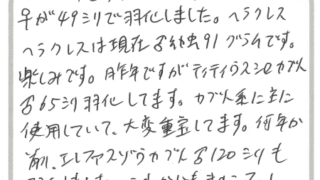 早が49ミリで羽化しました。ヘラクレス
ヘラクレスは現在♂幼虫91グラムです。
楽しみです。昨年ですがティティウスシロカブト
♂65ミリ羽化してます。カブト系に主に
使用していて、大変重宝してます。何年か
前、エレファスゾウカブト♂120ミリも